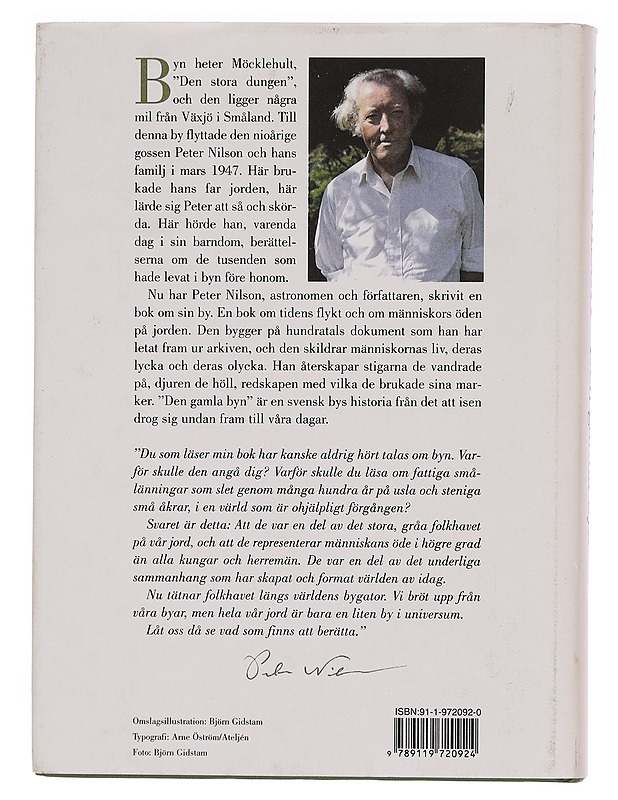 Byn heter Möcklehult,
"Den stora dungen",
och den ligger några
mil från Växjö i Småland. Till
denna by flyttade den nioårige
gossen Peter Nilson och hans
familj i mars 1947. Här bru-
kade hans far jorden, här
lärde sig Peter att så och skör-
da. Här hörde han, varenda
dag i sin barndom, berättel-
serna om de tusenden som
hade levat i byn före honom.
Nu har Peter Nilson, astronomen och författaren, skrivit en
bok om sin by. En bok om tidens flykt och om människors öden
på jorden. Den bygger på hundratals dokument som han har
letat fram ur arkiven, och den skildrar människornas liv, deras
lycka och deras olycka. Han återskapar stigarna de vandrade
på, djuren de höll, redskapen med vilka de brukade sina mar-
ker. "Den gamla byn" är en svensk bys historia från det att isen
drog sig undan fram till våra dagar.
"Du som läser min bok har kanske aldrig hört talas om byn. Var-
för skulle den angå dig? Varför skulle du läsa om fattiga små-
länningar som slet genom många hundra år på usla och steniga
små åkrar, i en värld som är ohjälpligt förgången?
Svaret är detta: Att de var en del av det stora, gråa folkhavet
på vår jord, och att de representerar människans öde i högre grad
än alla kungar och herremän. De var en del av det underliga
sammanhang som har skapat och format världen av idag.
Nu tätnar folkhavet längs världens bygator. Vi bröt upp från
våra byar, men hela vår jord är bara en liten by i universum.
Låt oss då se vad som finns att berätta."
Peter Nilson
Omslagsillustration: Björn Gidstam
Typografi: Arne Öström/Ateljén
Foto: Björn Gidstam
ISBN:91-1-972092-0
9 789119 720924